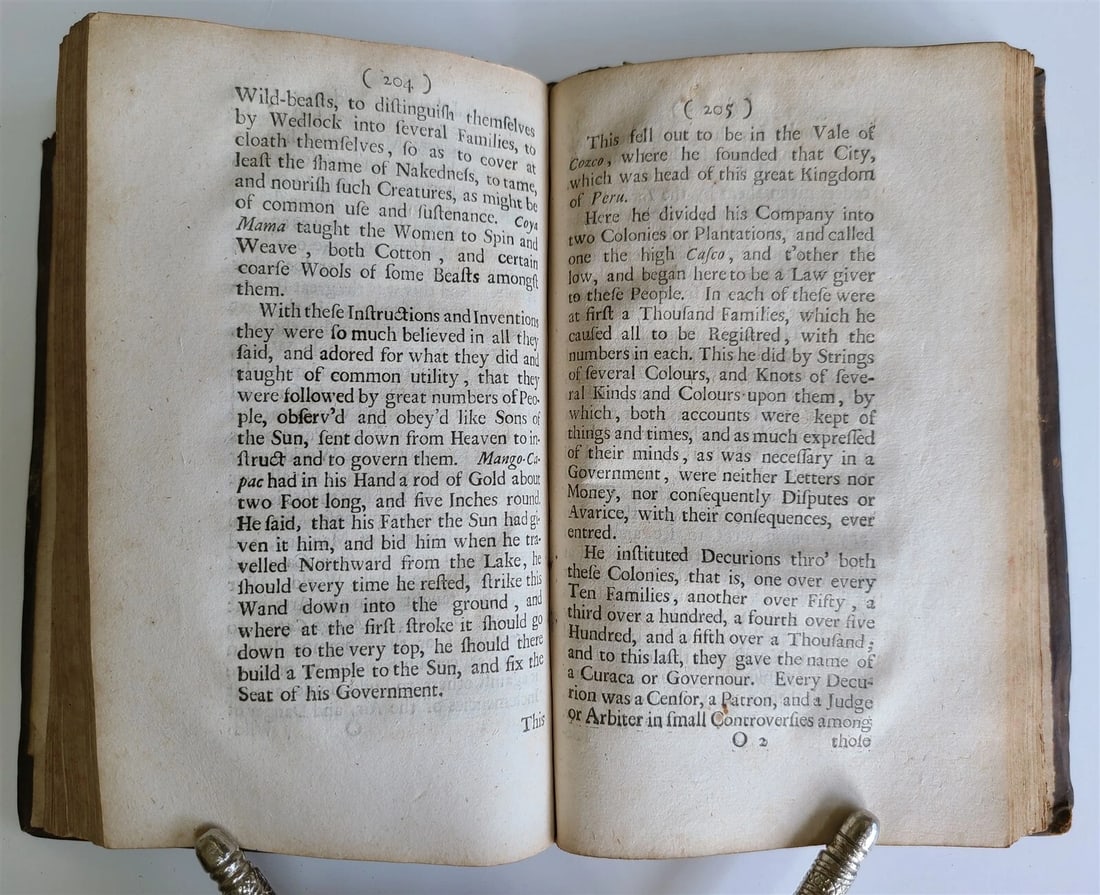 ( 204 )
Wild-beaſts, to diſtinguiſh themſelves
by Wedlock into ſeveral Families, to
cloath themſelves, ſo as to cover at
leaſt the ſhame of Nakedneſs, to tame,
and nouriſh ſuch Creatures, as might be
of common uſe and ſuſtenance. Coya
Mama taught the Women to Spin and
Weave , both Cotton , and certain
coarſe Wools of ſome Beaſts amongſt
them.
With theſe Inſtructions and Inventions
they were ſo much believed in all they
ſaid, and adored for what they did and
taught of common utility , that they
were followed by great numbers of Peo-
ple, obſerv'd and obey'd like Sons of
the Sun, ſent down from Heaven to in-
ſtruct and to govern them. Mango-Ca-
pac had in his Hand a rod of Gold about
two Foot long, and five Inches round.
He ſaid, that his Father the Sun had gi-
ven it him, and bid him when he tra-
velled Northward from the Lake, he
ſhould every time he reſted, ſtrike this
Wand down into the ground , and
where at the firſt ſtroke it ſhould go
down to the very top, he ſhould there
build a Temple to the Sun, and fix the
Seat of his Government.
This
( 205 )
This fell out to be in the Vale of
Cozco, where he founded that City,
which was head of this great Kingdom
of Peru.
Here he divided his Company into
two Colonies or Plantations, and called
one the high Caſco, and t'other the
low, and began here to be a Law giver
to theſe People. In each of theſe were
at firſt a Thouſand Families, which he
cauſed all to be Regiſtred, with the
numbers in each. This he did by Strings
of ſeveral Colours, and Knots of ſeve-
ral Kinds and Colours upon them, by
which, both accounts were kept of
things and times, and as much expreſſed
of their minds, as was neceſſary in a
Government, were neither Letters nor
Money, nor conſequently Diſputes or
Avarice, with their conſequences, ever
entred.
He inſtituted Decurions thro' both
theſe Colonies, that is, one over every
Ten Families, another over Fifty , a
third over a hundred, a fourth over five
Hundred, and a fifth over a Thouſand;
and to this laſt, they gave the name of
a Curaca or Governour. Every Decu-
rion was a Cenſor, a Patron, and a Judge
or Arbiter in ſmall Controverſies among
O 2 thoſe